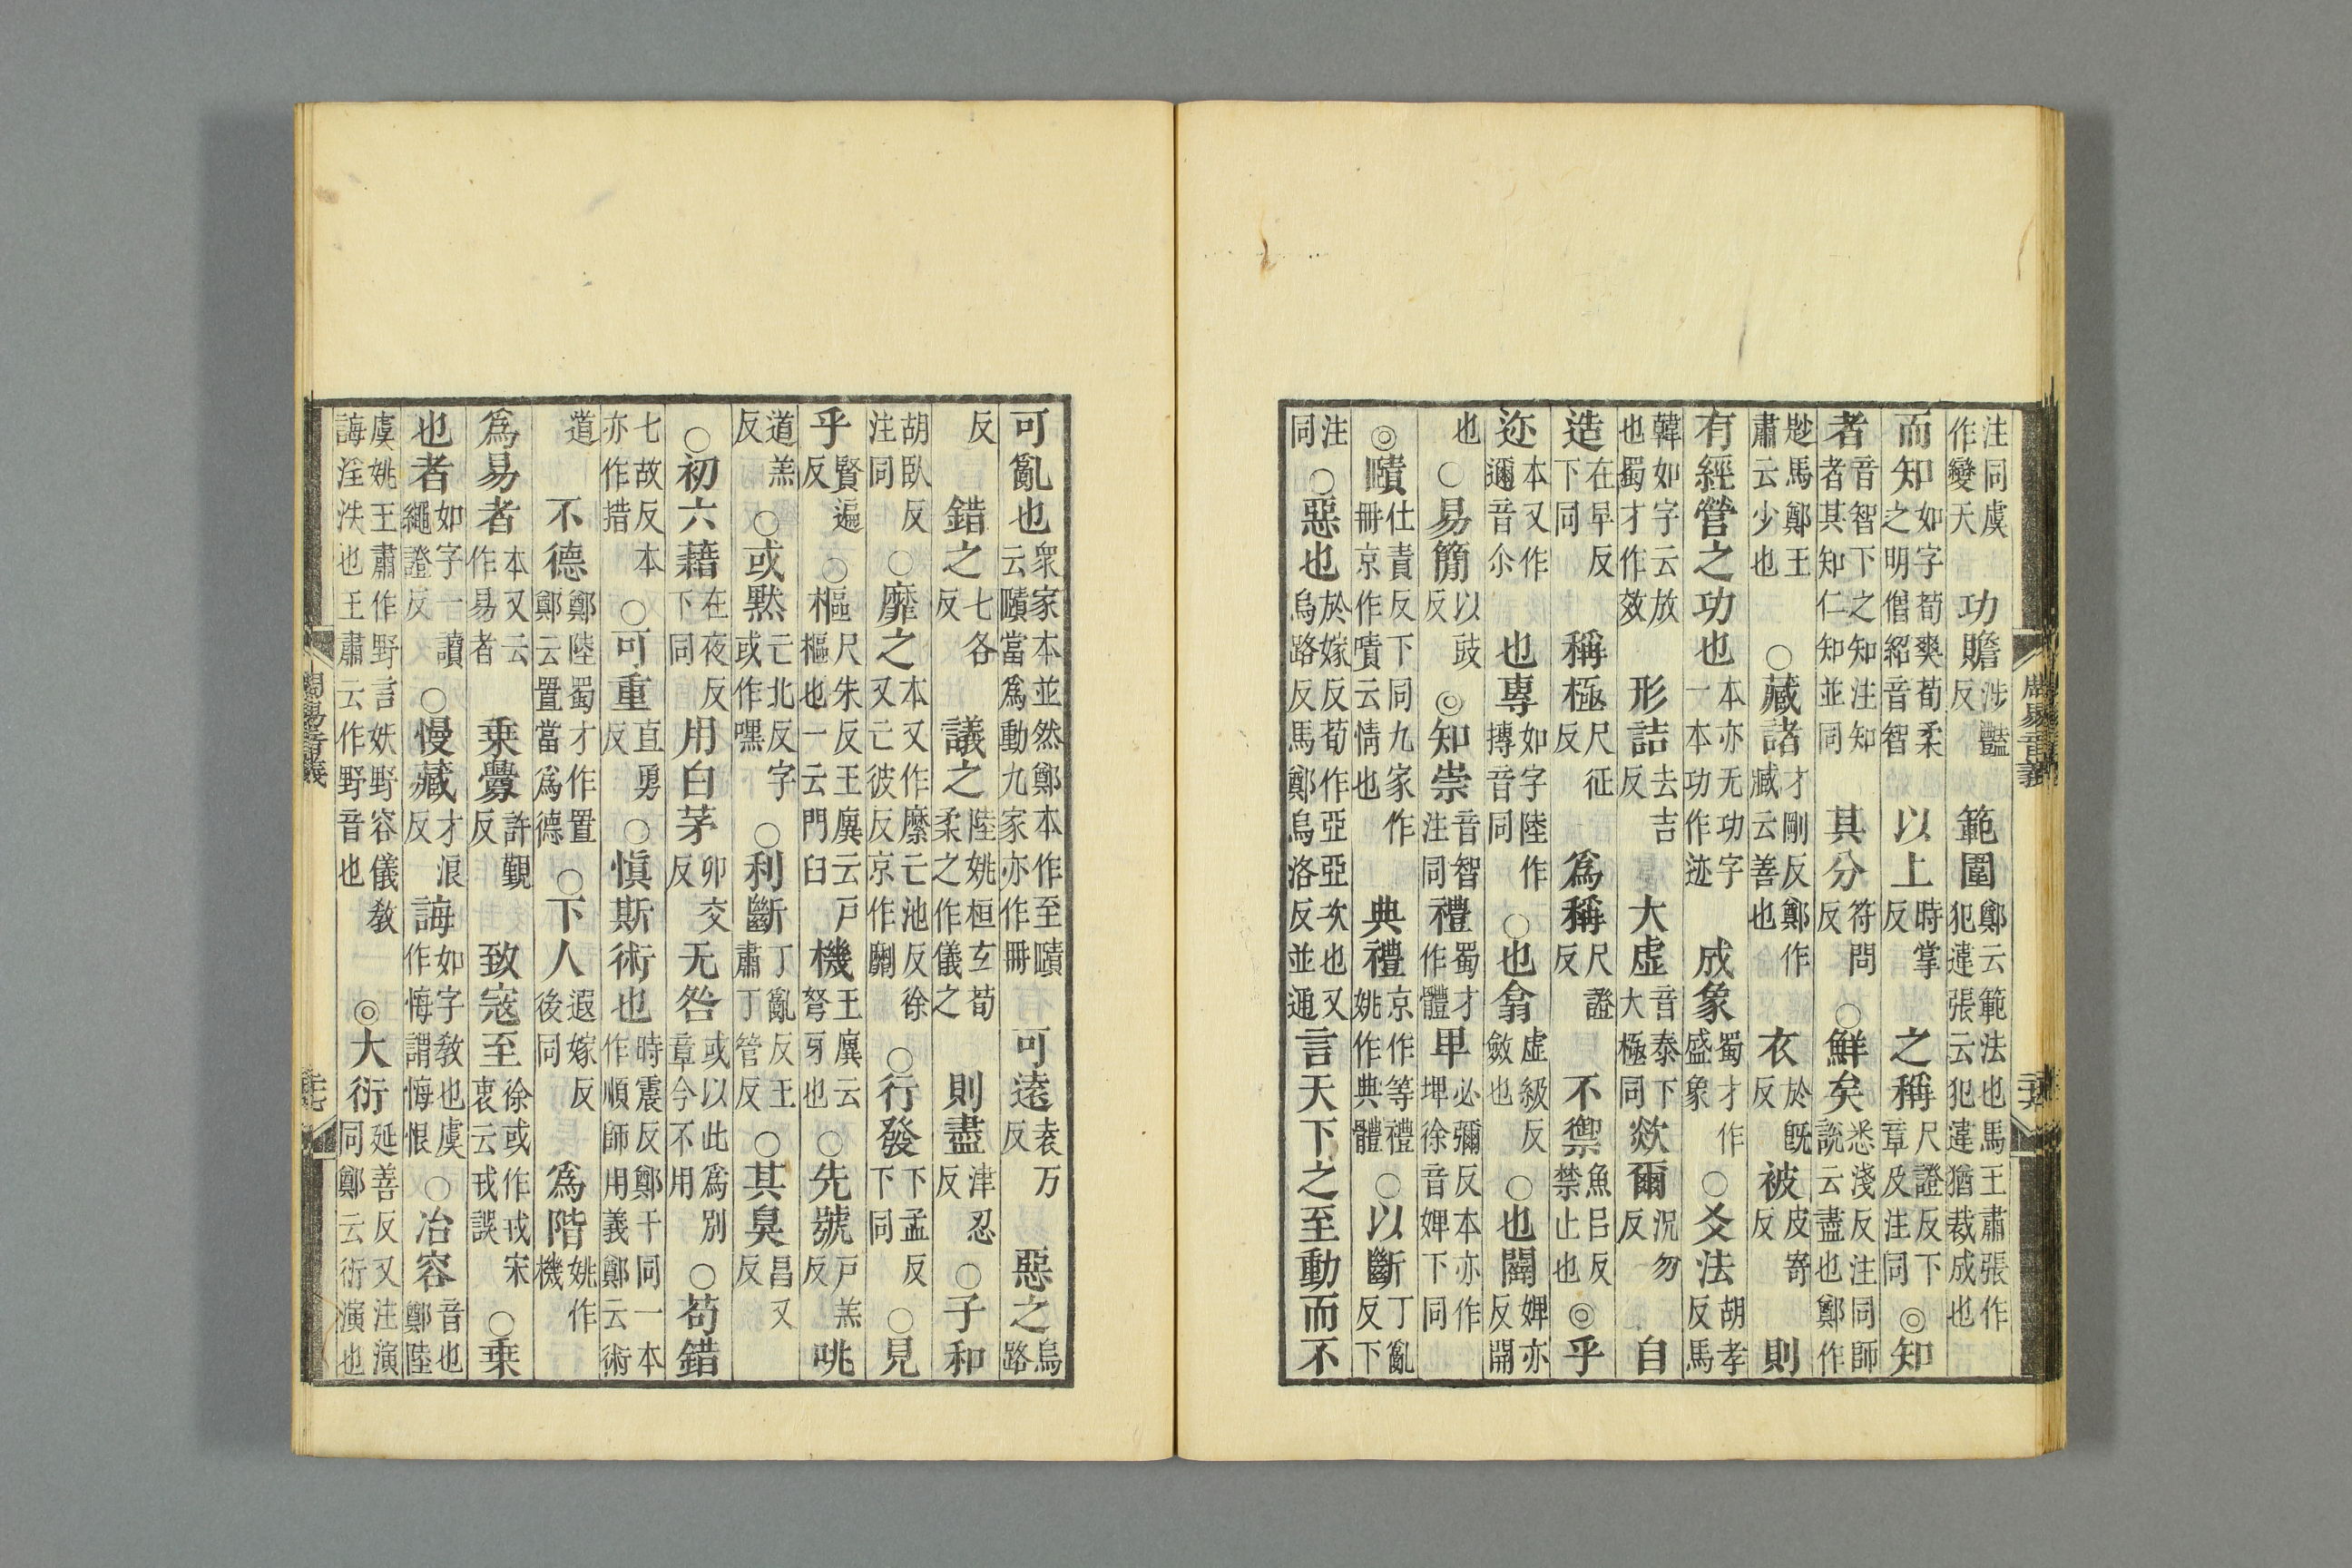 注同虞作變天 功贍涉豔反 範圍鄭云範法也馬王肅張作犯違張云犯違猶裁成也
而知如字荀爽荀柔之明僧紹音智 以上時掌反 之稱尺證反下章及注同 ◎知
者音智下之知注知者其知仁知知並同 其分符問反 ○鮮矣悉淺反注同師說云盡也鄭作
尟馬鄭王肅云少也 ○藏諸才剛反鄭作臧云善也 衣於旣反 被皮寄反 則
有經營之功也本亦无功字一本功作迹 成象蜀才作盛象 ○爻法胡孝反馬
韓如字云放也蜀才作效 形詰去吉反 大虛音泰下大極同 欻爾況勿反 自
造在早反下同 稱極尺征反 爲稱尺證反 不禦魚呂反禁止也 ◎乎
迩本又作邇音尒 也專如字陸作摶音同 ○也翕虛級反斂也 ○也闢婢亦反開
也 ○易簡以豉反 ◎知崇音智注同 禮蜀才作體 卑必彌反本亦作埤徐音婢下同
◎賾仕責反下同九家作冊京作嘖云情也 典禮京作等禮姚作典體 ○以斷丁亂反下
注同 ○惡也於嫁反荀作亞亞次也又烏路反馬鄭烏洛反並通 言天下之至動而不
可亂也衆家本並然鄭本作至賾云賾當爲動九家亦作冊 可遠袁万反 惡之烏路
反 錯之七各反 議之陸姚桓玄荀柔之作儀之 則盡津忍反 ○子和
胡臥反注同 ○靡之本又作縻亡池反徐又亡彼反京作劘 ○行發下孟反下同 ○見
乎賢遍反 ○樞尺朱反王廙云戶樞也一云門臼 機王廙云弩牙也 ○先號戶羔反 咷
道羔反 ○或默亡北反字或作嘿 ○利斷丁亂反王肅丁管反 ○其臭昌又反
○初六藉在夜反下同 用白茅卯交反 无咎或以此爲別章今不用 ○苟錯
七故反本亦作措 ○可重直勇反 ○愼斯術也時震反鄭干同一本作順師用義鄭云術
道 不德鄭陸蜀才作置鄭云置當爲德 ○下人遐嫁反後同 爲階姚作機
爲易者本又云作易者 乗釁許覲反 致寇至徐或作戎宋衷云戎誤 ○乗
也者如字一讀繩證反 ○慢藏才浪反 誨如字敎也虞作悔謂悔恨 ○冶容音也鄭陸
虞姚王肅作野言妖野容儀敎誨淫泆也王肅云作野音也 ◎大衍延善反又注演同鄭云衍演也
周易音義 二十六
周易音義